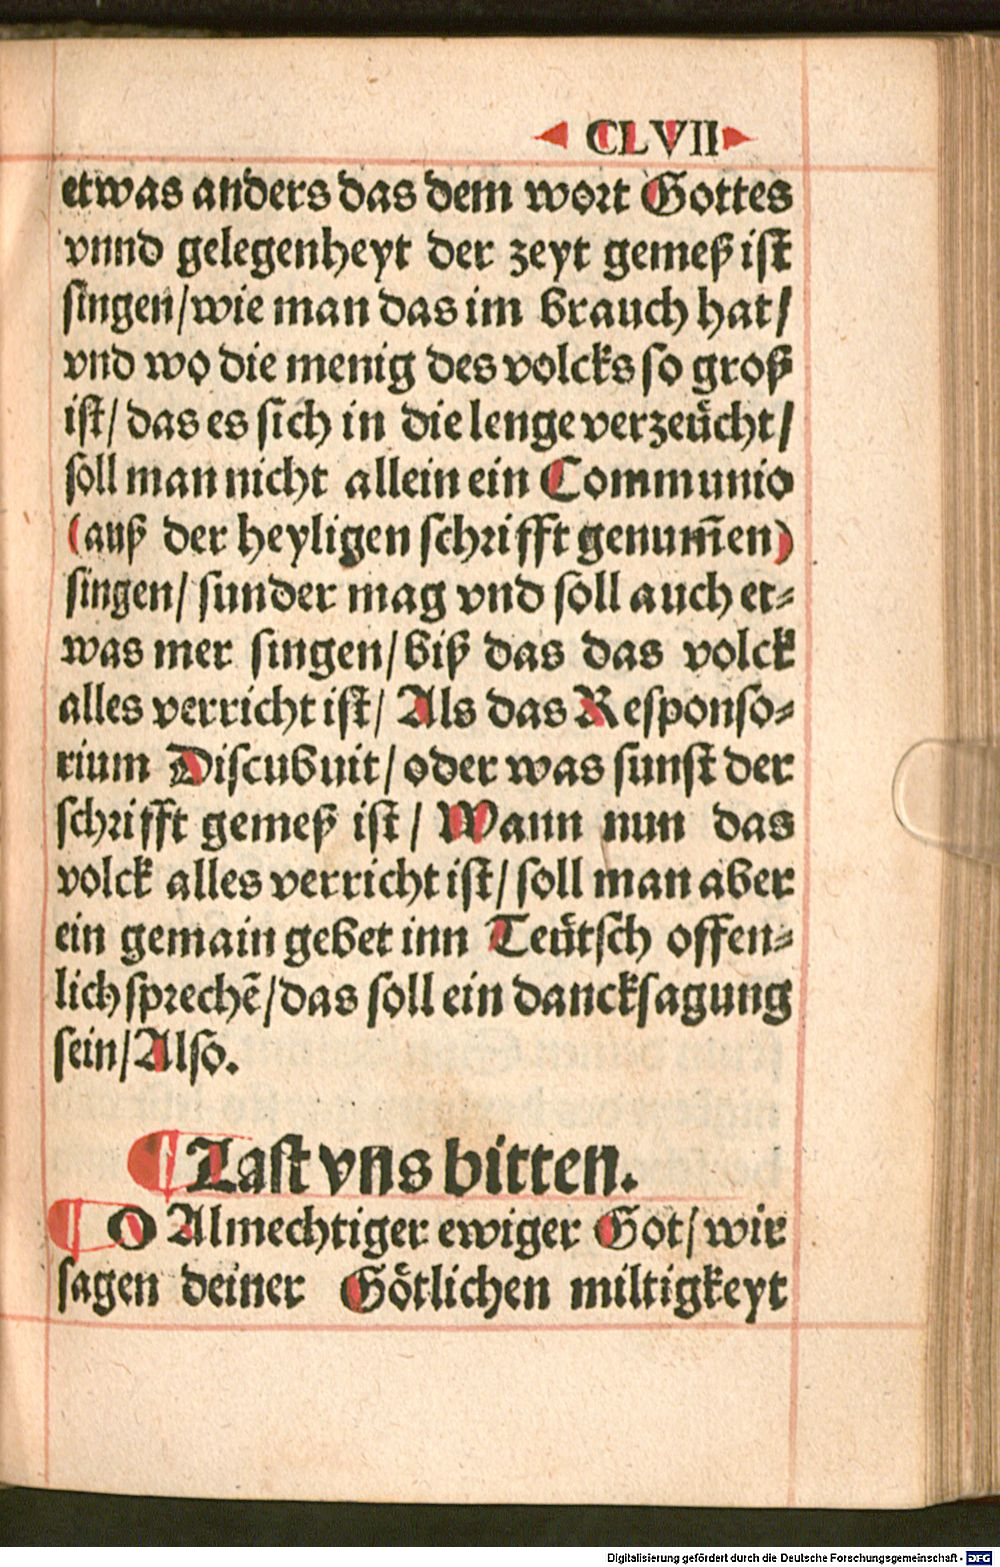 CLVII
etwas anders das dem wort Gottes
vnnd gelegenheyt der zeyt gemeß ist
singen/wie man das im brauch hat/
vnd wo die menig des volcks so groß
ist/ das es sich in die lenge verzeücht/
soll man nicht allein ein Communio
(auß der heyligen schrifft genum̃en)
singen/ sunder mag vnd soll auch et⸗
was mer singen/ biß das das volck
alles verricht ist/ Als das Responso⸗
rium Discubuit/ oder was sunst der
schrifft gemeß ist / Wann nun das
volck alles verricht ist/ soll man aber
ein gemain gebet inn Teütsch offen⸗
lich sprechẽ/ das soll ein dancksagung
sein/ Also.
¶ Last vns bitten.
¶ O Almechtiger ewiger Got/ wir
sagen deiner Götlichen miltigkeyt
Digitalisierung gefördert durch die Deutsche Forschungsgemeinschaft - DFG